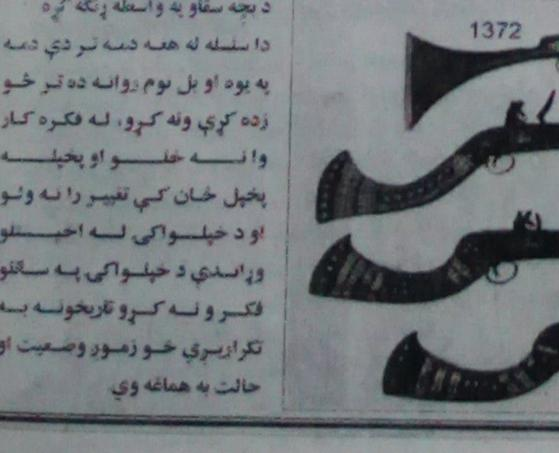 د بچه سقاو په واسطه رنګه کړه
دا سلسله له هغه دمه تر دې دمه
په یوه او بل نوم روانه ده تر څو
زده کړې ونه کړو، له فکره کار
وا نــــه خلــــو او پخپلــــه
پخپل ځان کې تغییر را نه ولو
او د خپلــواکۍ لــه اخیــستلو
وړانــدې د خپلــواکۍ پــه ســاتلو
فکــر و نــه کــړو تاریخونــه بــه
تکراریږي خــو زمــوږ وضــعیت او
حالت به هماغه وي
1372